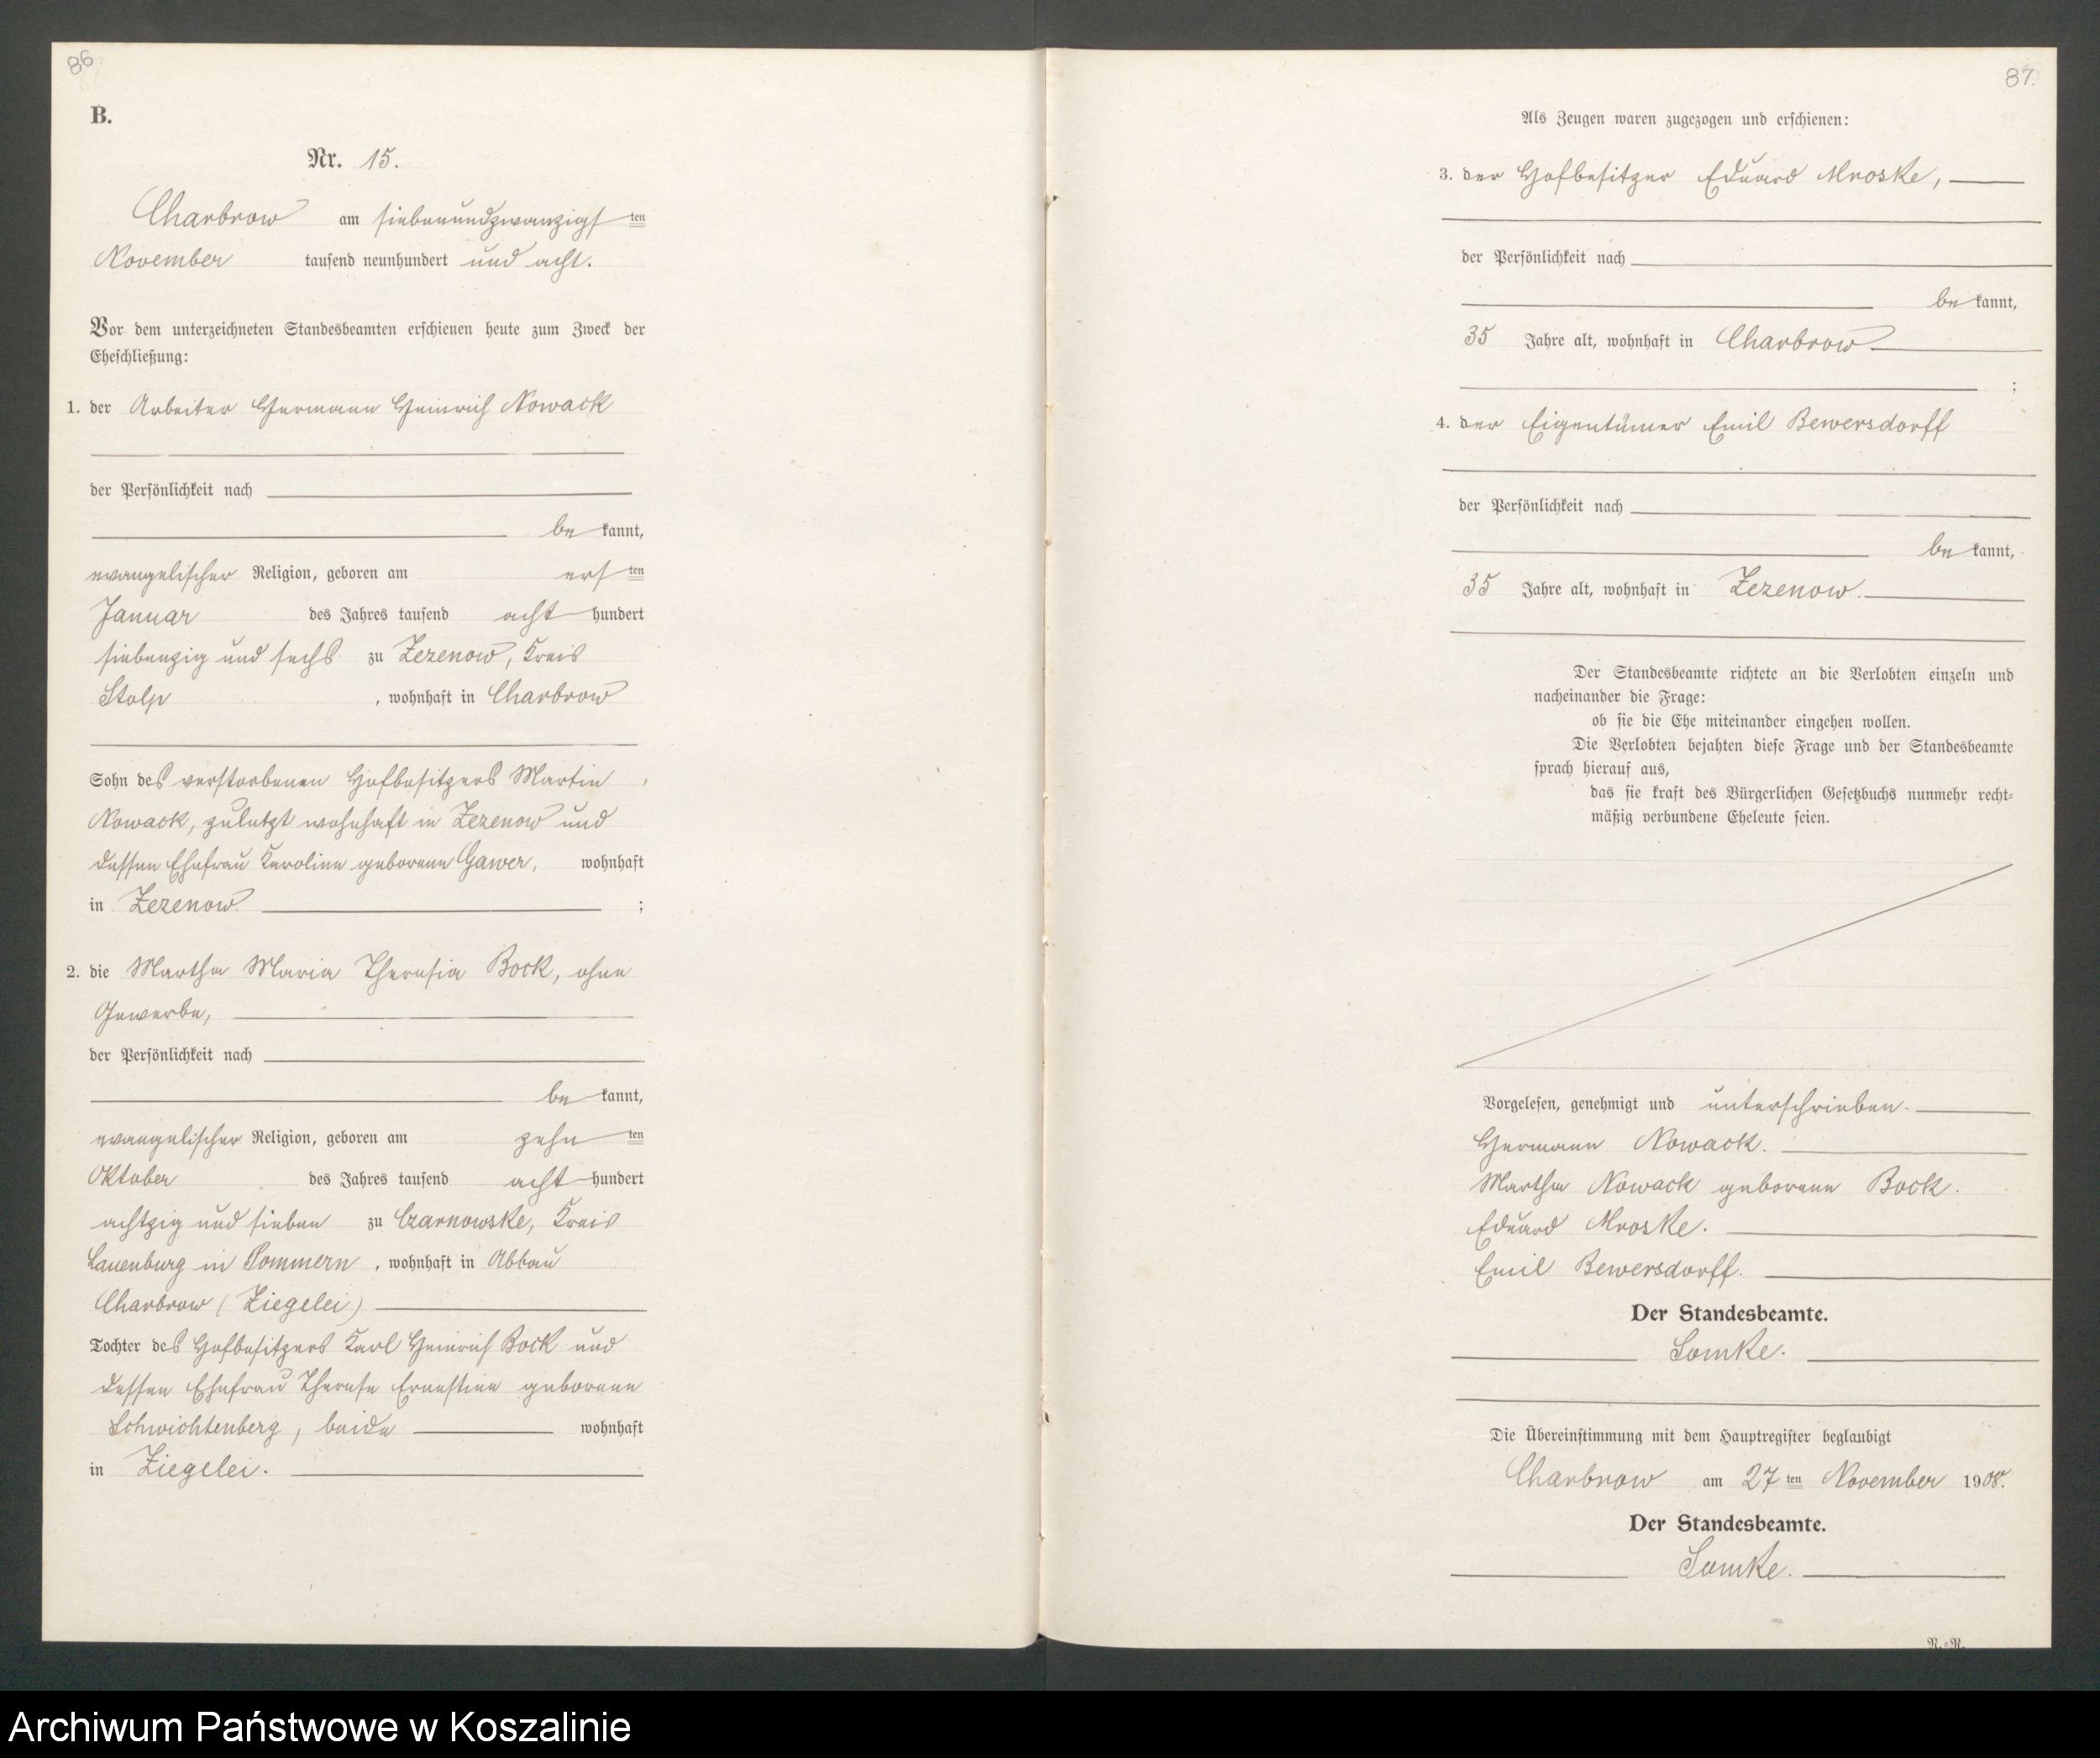 86
B.
Nr. 15.
Charbrow am siebenundzwanzigsten
November tausend neunhundert und acht.
Vor dem unterzeichneten Standesbeamten erschienen heute zum Zweck der
Eheschließung:
1. der Arbeiter Hermann Heinrich Nowack
der Persönlichkeit nach
be kannt,
evangelischer Religion, geboren am ersten
Januar des Jahres tausend acht hundert
siebenzig und sechs zu Zezenow, Kreis
Stolp, wohnhaft in Charbrow
Sohn des verstorbenen Hofbesitzers Martin
Nowack, zuletzt wohnhaft in Zezenow und
dessen Ehefrau Karoline geborene Gawer, wohnhaft
in Zezenow ;
2. die Martha Maria Theresia Bock, ohne
Gewerbe,
der Persönlichkeit nach
be kannt,
evangelischer Religion, geboren am zehn ten
Oktober des Jahres tausend acht hundert
achtzig und sieben zu Czarnowske, Kreis
Lauenburg in Pommern, wohnhaft in Abbau
Charbrow (Ziegelei)
Tochter des Hofbesitzers Karl Heinrich Bock und
dessen Ehefrau Therese Ernestine geborene
Schwichtenberg, beide wohnhaft
in Ziegelei.
87.
Als Zeugen waren zugezogen und erschienen:
3. der Hofbesitzer Eduard Mroske,
der Persönlichkeit nach
be kannt,
35 Jahre alt, wohnhaft in Charbrow
;
4. der Eigentümer Emil Bewersdorff
der Persönlichkeit nach
be kannt,
35 Jahre alt, wohnhaft in Zezenow.
Der Standesbeamte richtete an die Verlobten einzeln und
nacheinander die Frage:
ob sie die Ehe miteinander eingehen wollen.
Die Verlobten bejahten diese Frage und der Standesbeamte
sprach hierauf aus,
das sie kraft des Bürgerlichen Gesetzbuchs nunmehr recht-
mäßig verbundene Eheleute seien.
Vorgelesen, genehmigt und unterschrieben.
Hermann Nowack.
Martha Nowack geborene Bock.
Eduard Mroske.
Emil Bewersdorff.
Der Standesbeamte.
Lomke.
Die Übereinstimmung mit dem Hauptregister beglaubigt
Charbrow am 27ten November 1908.
Der Standesbeamte.
Lomke.
R.-R.
Archiwum Państwowe w Koszalinie